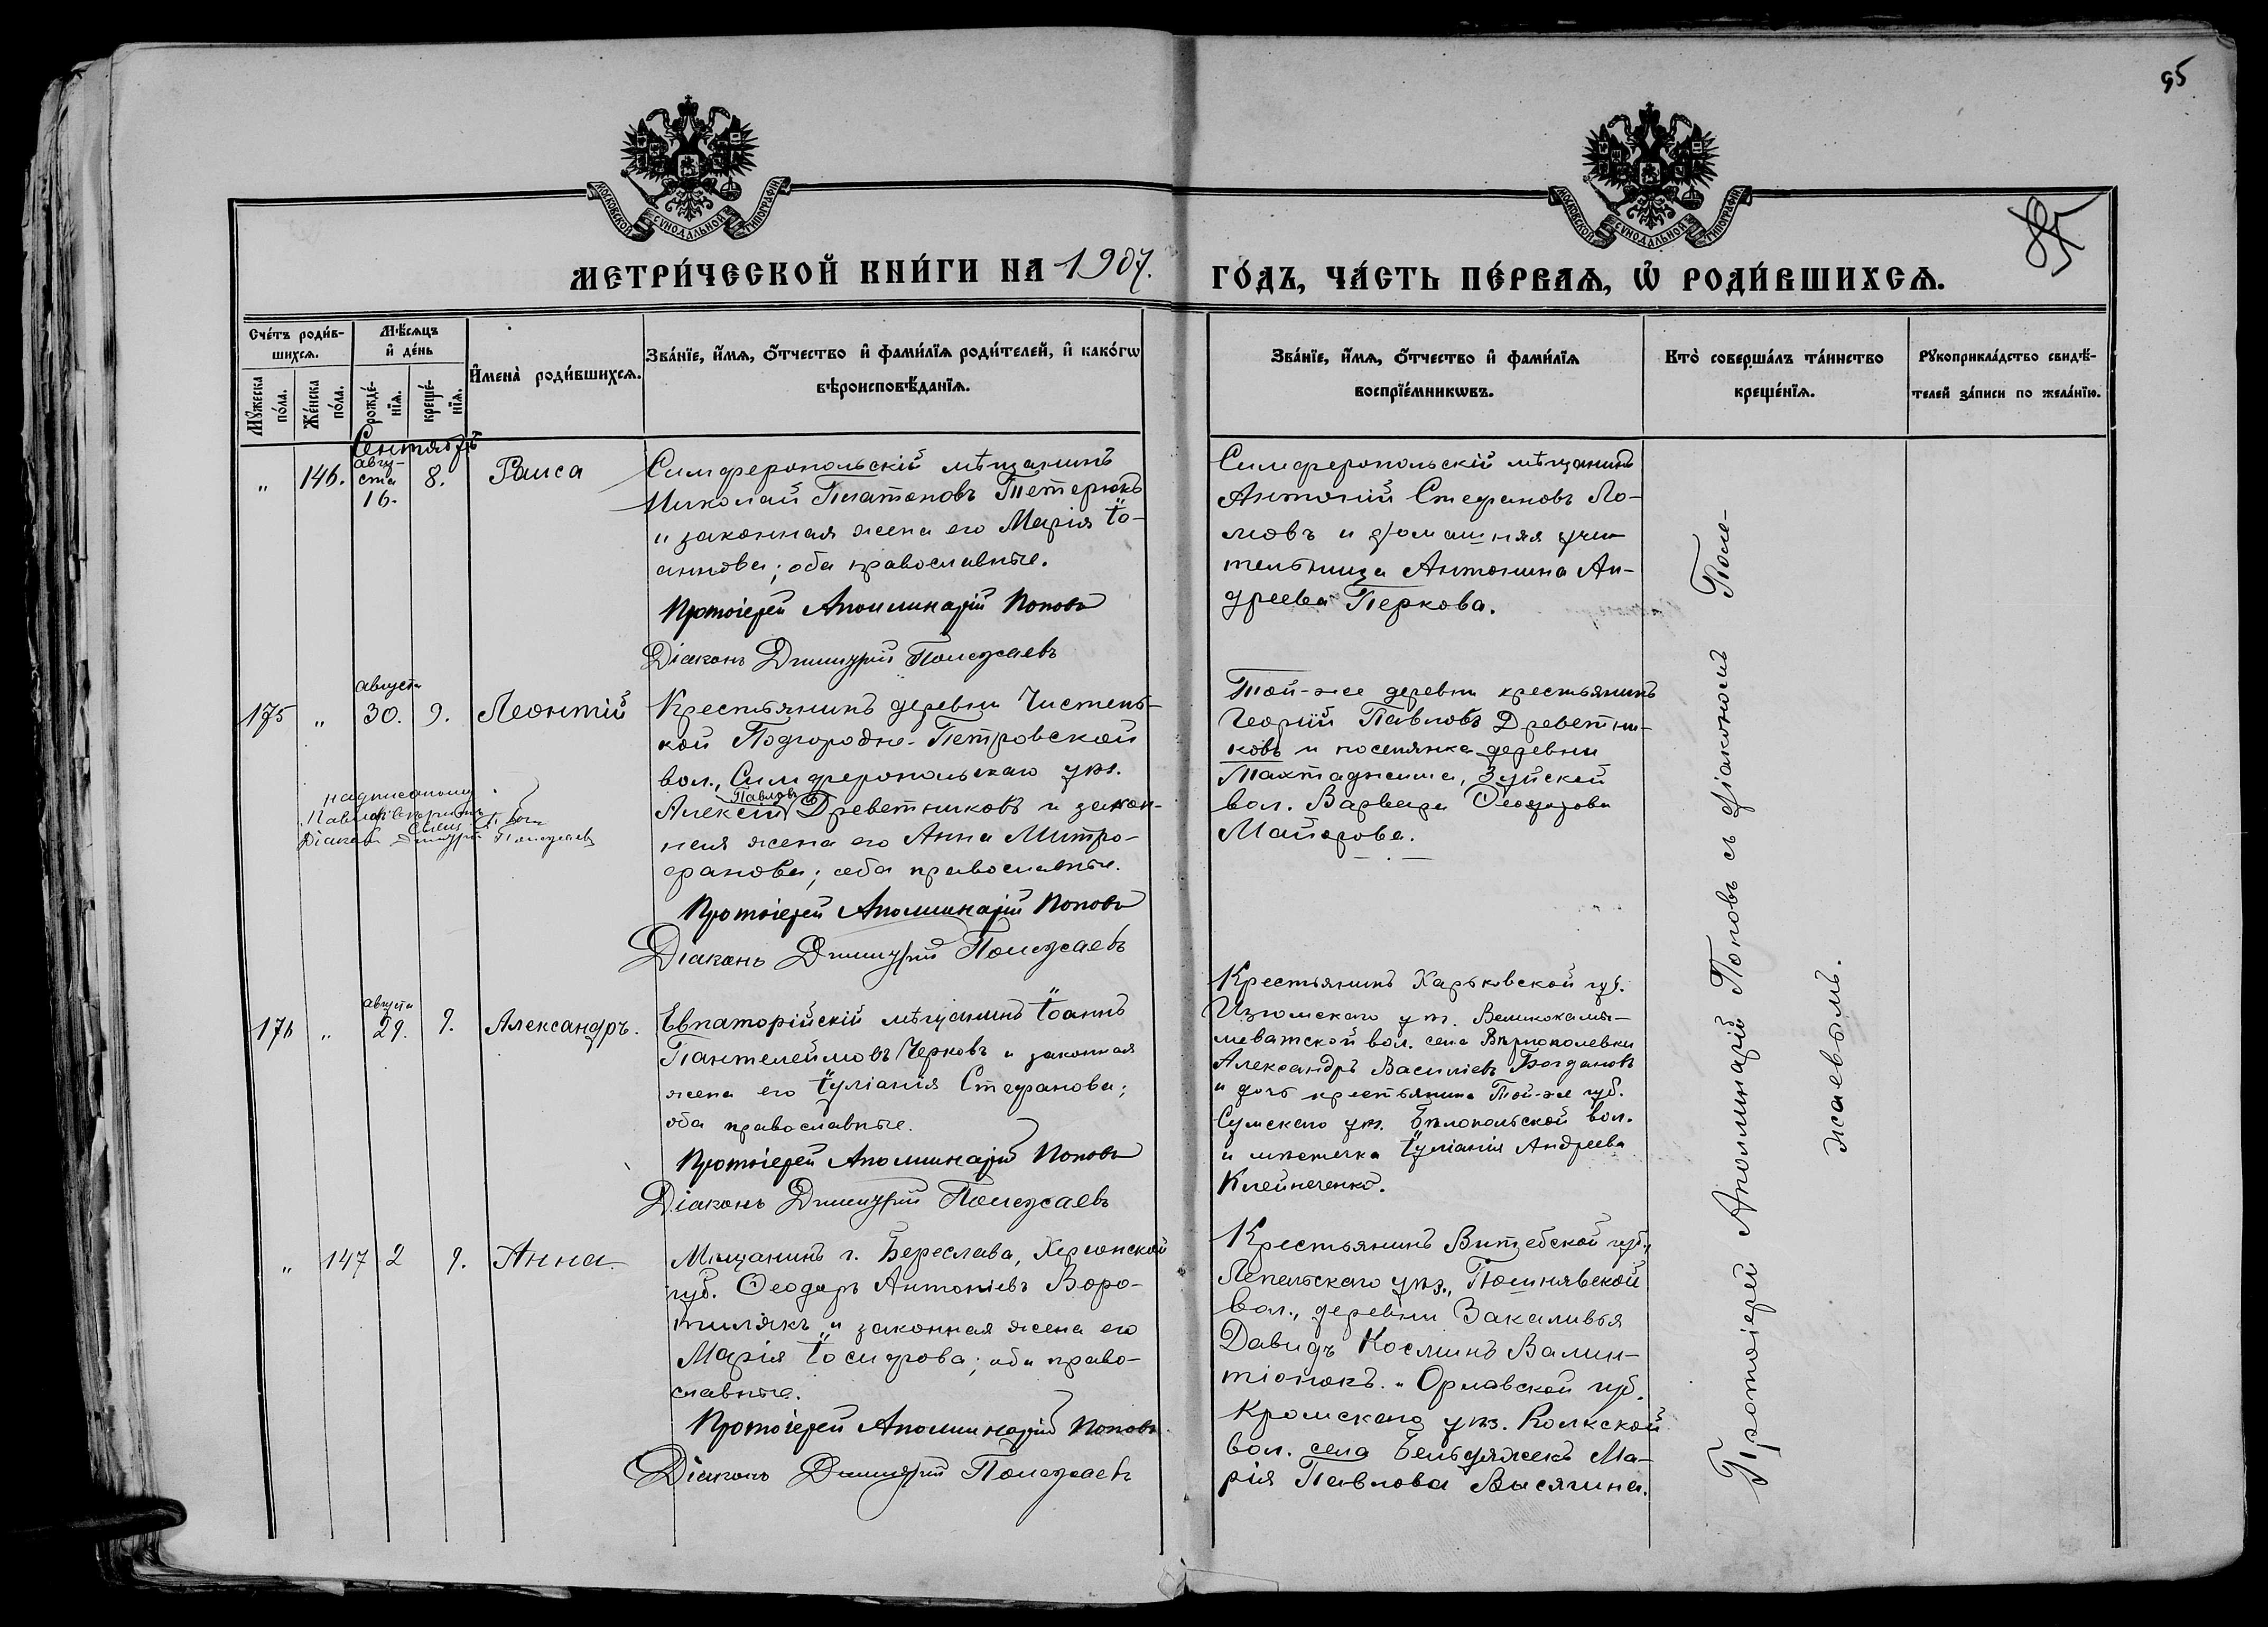 95
МОСКОВСКОЙ СѴНОДАЛЬНОЙ ТИПОГРАФІИ
МОСКОВСКОЙ СѴНОДАЛЬНОЙ ТИПОГРАФІИ
МЕТРИ́ЧЕСКОЙ КНИ́ГИ НА 1907.
ГО́ДЪ, ЧА́СТЬ ПЕ́РВАѦ, Ѽ РОДИ́ВШИХСѦ.
Сче́тъ роди́в-
шихсѧ.
Мꙋжеска по́ла.
Же́нска по́ла.
Мѣ́сѧцъ
и҆ де́нь
рожде́-
нїѧ.
креще́-
нїѧ.
И҆мена̀ роди́вшихсѧ.
Зва́нїе, и҆́мѧ, ѻ҆́тчество и҆ фами́лїѧ роди́телей, и҆ како́гѡ
вѣроисповѣ́данїѧ.
Зва́нїе, и҆́мѧ, ѻ҆́тчество и҆ фами́лїѧ
воспрїе́мникѡвъ.
Кто̀ соверша́лъ та́инство
креще́нїѧ.
Рꙋкоприкла́дство свидѣ́-
телей за́писи по жела́нїю.
Сентябрь
" 146. авгу-
ста
16. 8. Раиса
Симферопольскій мѣщанинъ
Николай Платоновъ Тетерюкъ
и законная жена его Марія Іо-
аннова; оба православные.
Протоіерей Аполлинарій Поповъ
Діаконъ Димитрій Полежаевъ
Симферопольскій мѣщанинъ
Антоній Стефановъ Ло-
мовъ и домашняя учи-
тельница Антонина Ан-
дреева Перкова.
175 " августа
30. 9. Леонтій
Крестьянинъ деревни Чистень-
кой Подгородне-Петровской
вол., Симферопольскаго уѣз.
Павловъ
Алексій Древетниковъ и закон-
ная жена его Анна Митро-
фанова; оба православные.
Протоіерей Аполлинарій Поповъ
Діаконъ Димитрій Полежаевъ
надписаному
Діаконъ Димитрій Полежаевъ
Той-же деревни крестьянинъ
Георгій Павловъ Древетни-
ковъ и поселянка деревни
Махтаджима, Зуйской
вол. Варвара Ѳеодорова
Майорова.
176 " августа
29. 9. Александръ.
Евпаторійскій мѣщанинъ Іоаннъ
Пантелеймовъ Черковъ и законная
жена его Іуліанія Стефанова;
оба православные.
Протоіерей Аполлинарій Поповъ
Діаконъ Димитрій Полежаевъ
Крестьянинъ Харьковской губ.
Изюмскаго уѣз. Великокамы-
шеватской вол. села Вѣрнополевки
Александръ Василіевъ Богдановъ
и дочь крестьянина Той-же губ.
Сумскаго уѣз. Бѣлопольской вол.
и мѣстечка Іуліанія Андреева
Клейнеченко.
" 147 2 9. Анна
Мѣщанинъ г. Береслава, Херсонской
губ. Ѳеодоръ Антоніевъ Воро-
тилякъ и законная жена его
Марія Іосифова; оба право-
славные.
Протоіерей Аполлинарій Поповъ
Діаконъ Димитрій Полежаевъ
Крестьянинъ Витебской губ.,
Лепельскаго уѣз.,
вол., деревни Закаливья
Давидъ Косминъ Валин-
тіонокъ. и Орловской губ.
Кромскаго уѣз.
вол. села Бельдяжекъ Ма-
рія Павлова Высягина.
Протоіерей Аполлинарій Поповъ съ діакономъ Поле-
жаевымъ.